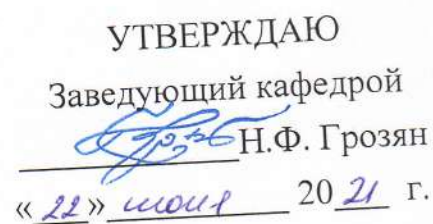 УТВЕРЖДАЮ
Заведующий кафедрой
Н.Ф. Грозян
« 22 » июня 20 21 г.